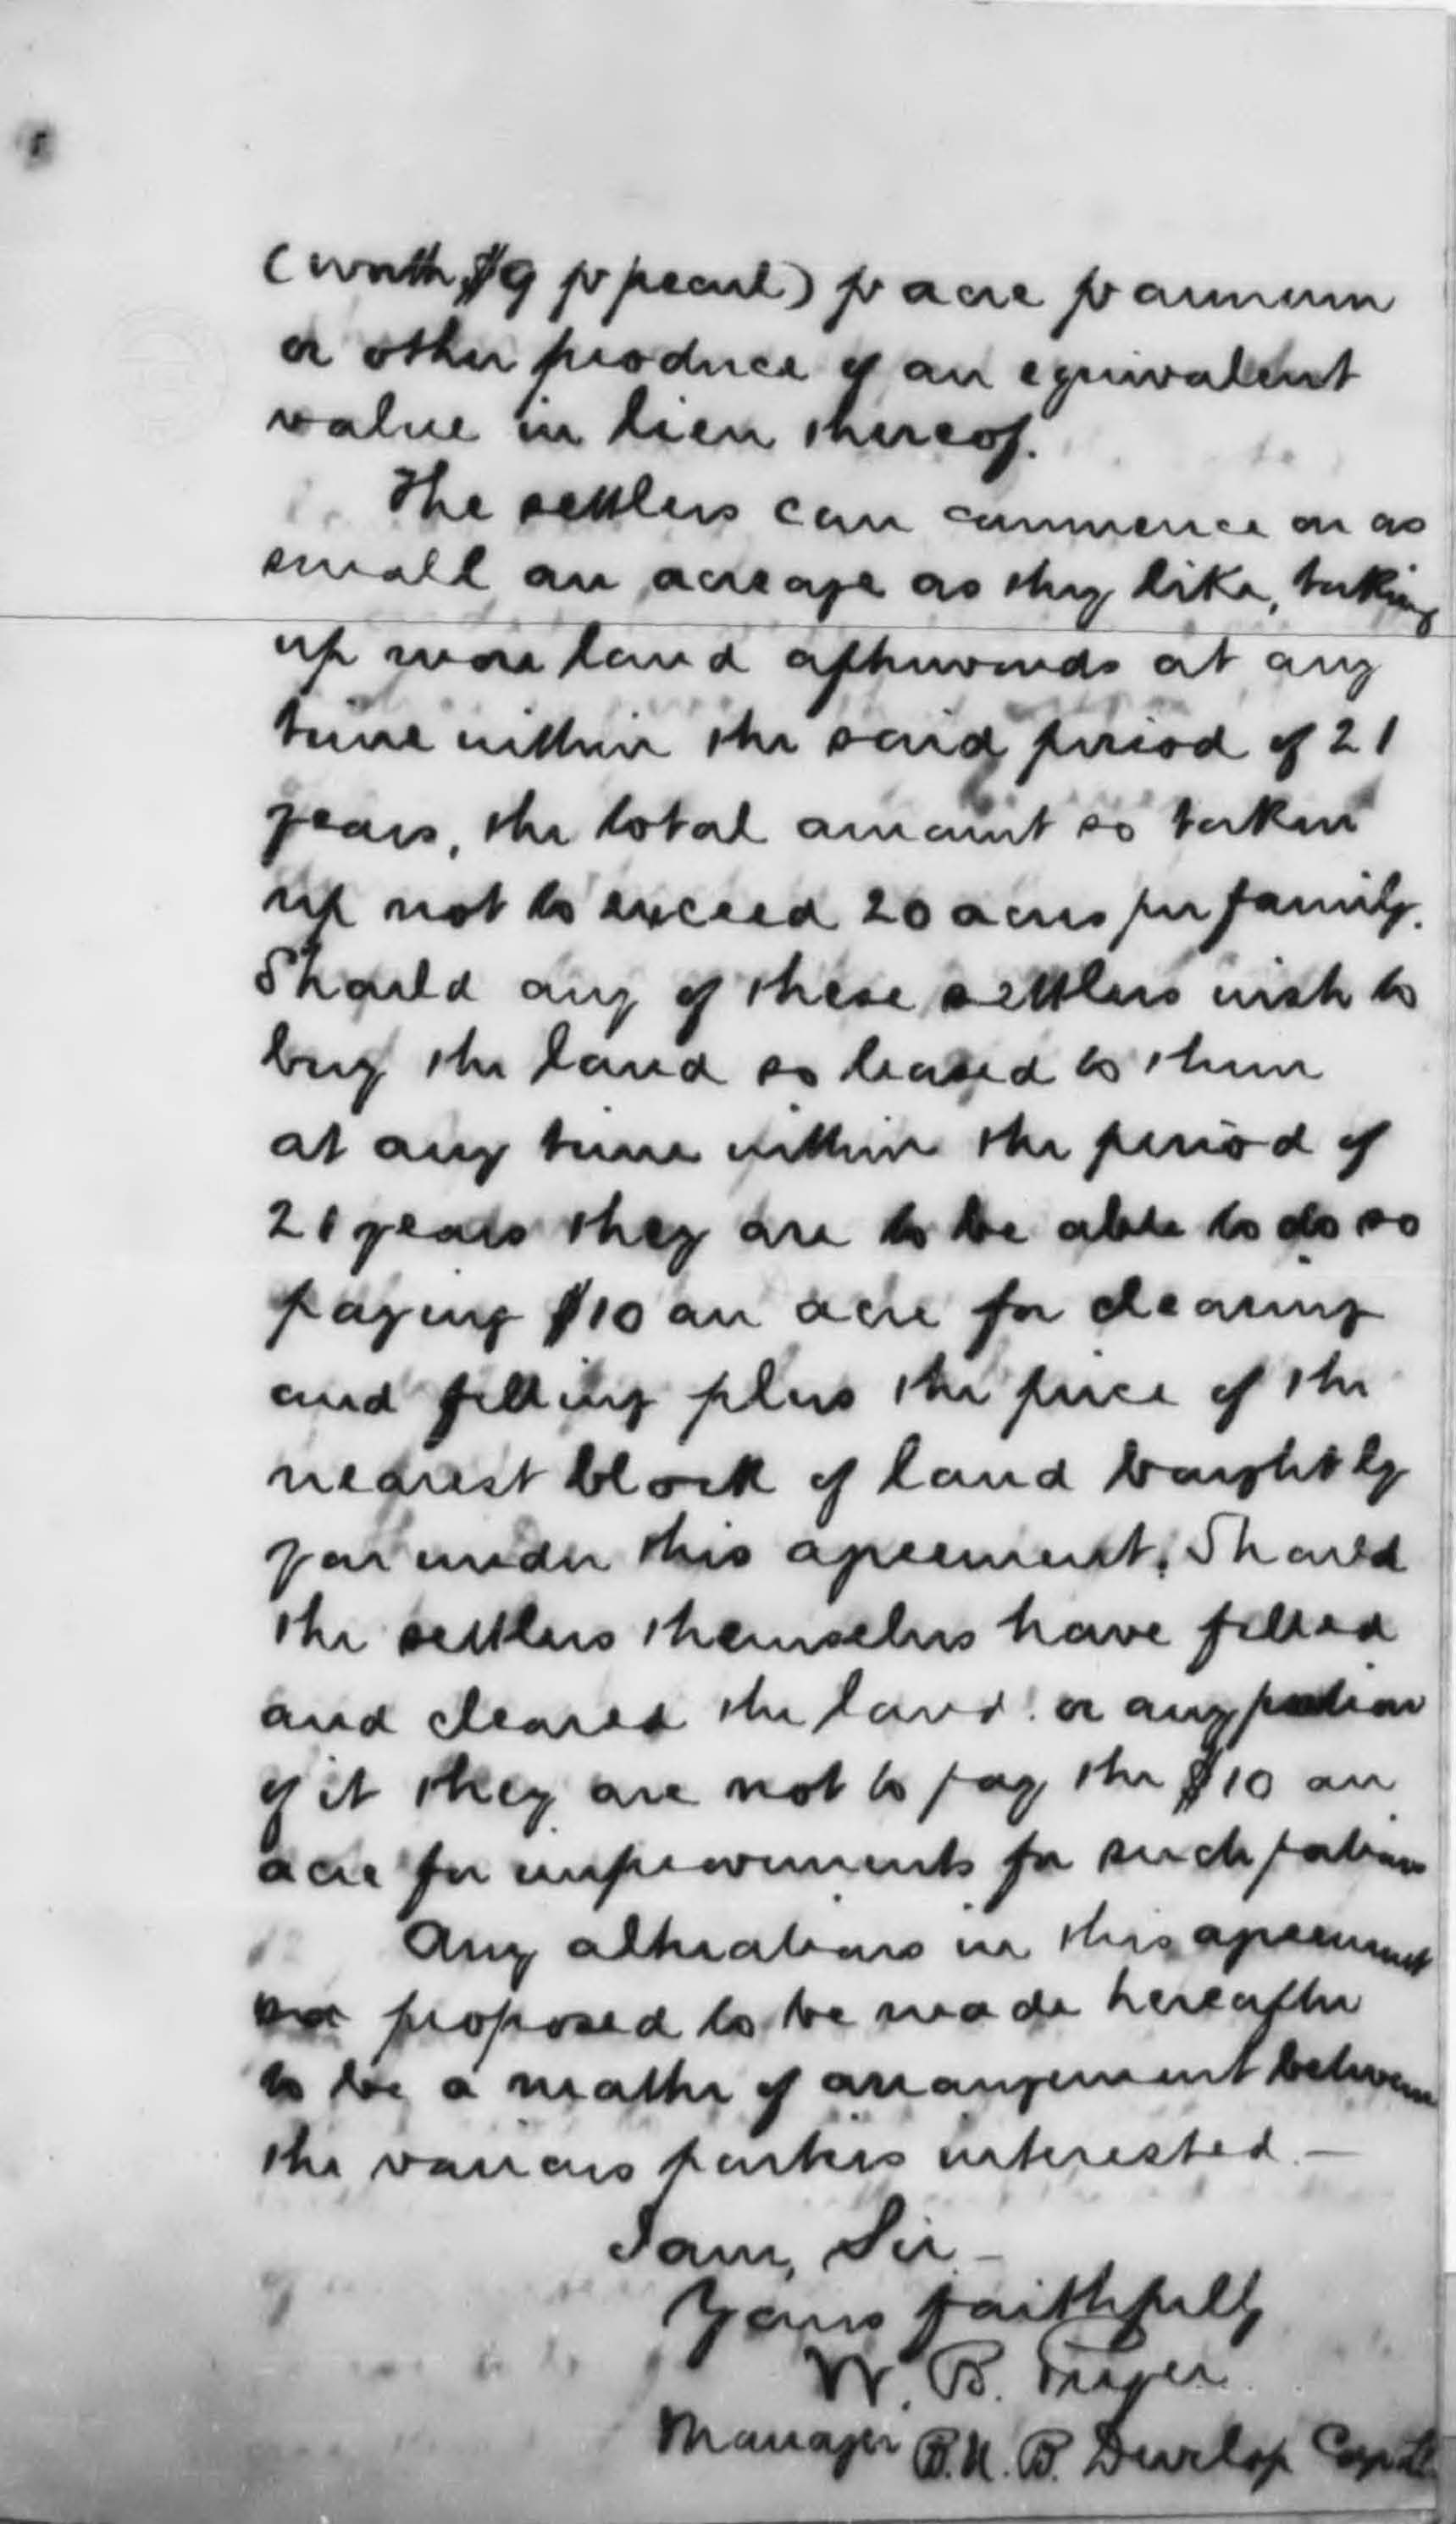 (worth $9 pr pecul) pr acre pr annum
or other produce of an equivalent
value in lieu thereof.
The settlers can commence on as
small an acreage as they like, taking
up more land afterwards at any
time within the said period of 21
years, the total amount so taken
up not to exceed 20 acres per family.
Should any of these settlers wish to
buy the land so leased to them
at any time within the period of
21 years they are to be able to do so
paying $10 an acre for clearing
and felling plus the price of the
nearest block of land bought by
you under this agreement. Should
the settlers themselves have felled
and cleared the land or any portion
of it they are not to pay the $10 an
acre for improvements for such portion
Any alterations in this agreement
proposed to be made hereafter
to be a matter of arrangement between
the various parties interested. —
I am, Sir –
Yours faithfully
W. B. Pryer
Manager B.N.B. Develop